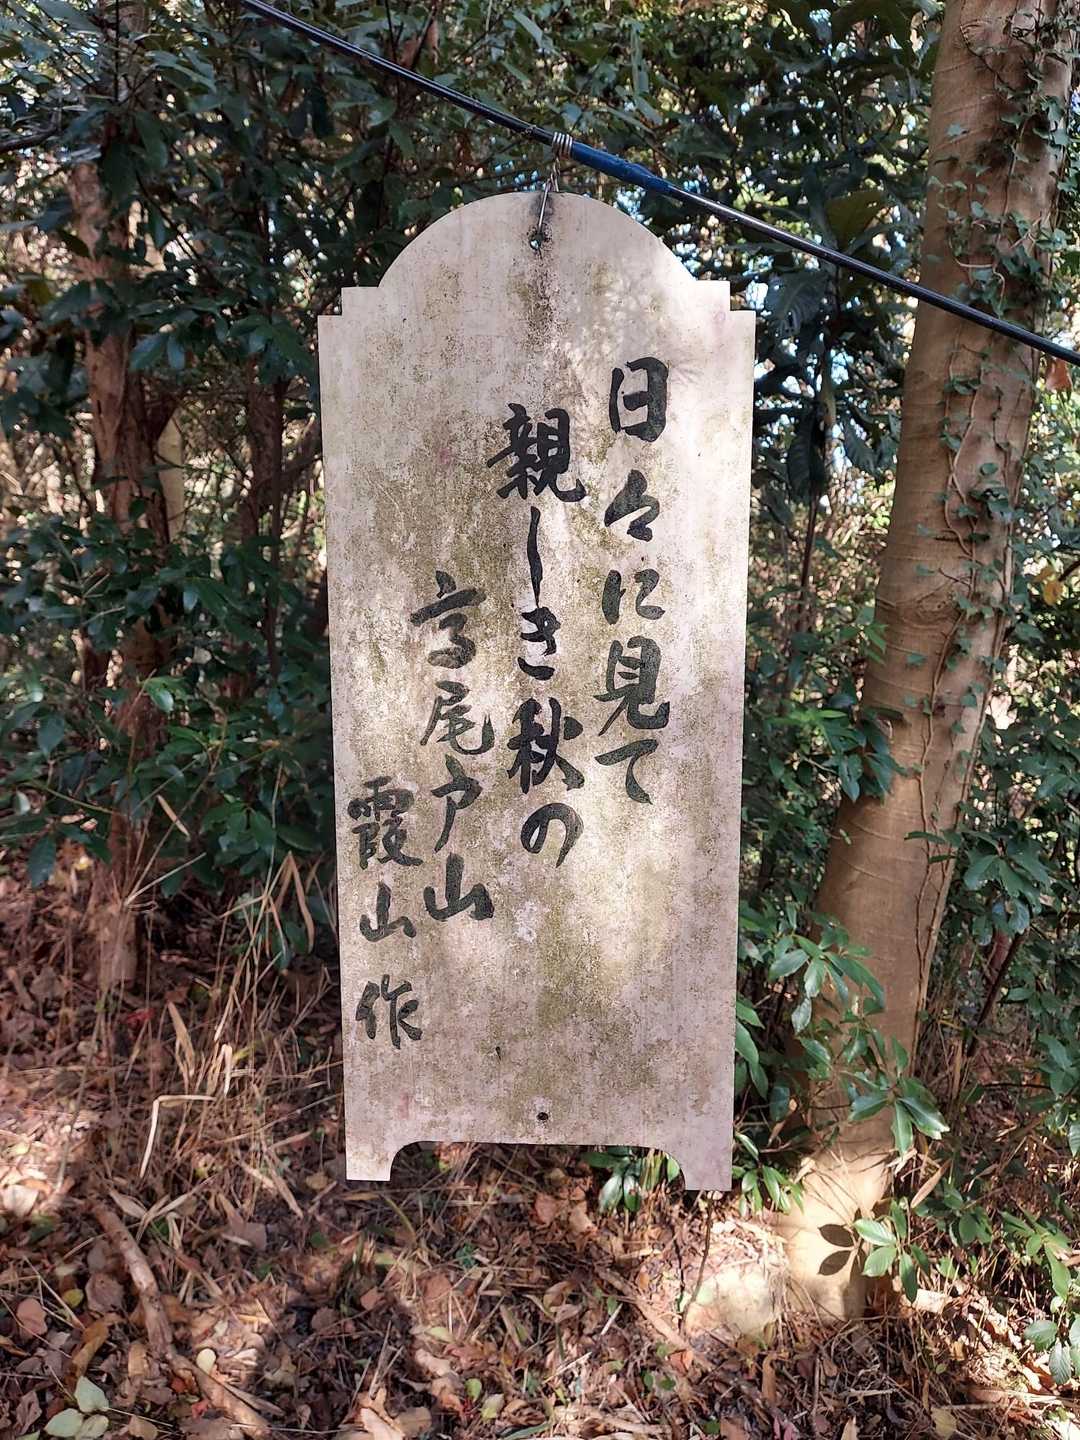 日々に見て
親しき秋の
高尾戸山
霞山作